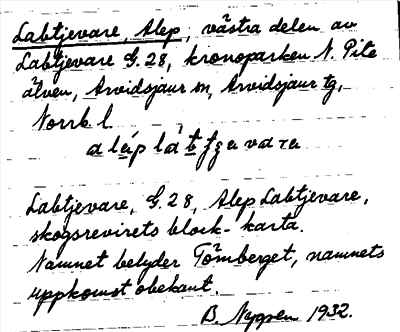 Labtjevare, Alep, västra delen av
Labtjevare G. 28, kronoparken N. Pite
älven, Arvidsjaur sn, Arvidsjaur tg,
Norrb. l.
Labtjevare, G. 28, Alep Labtjevare,
skogsrevirets block-karta.
Namnet betyder Tömberget, namnets
uppkomst obekant.
B. Nygren 1932.